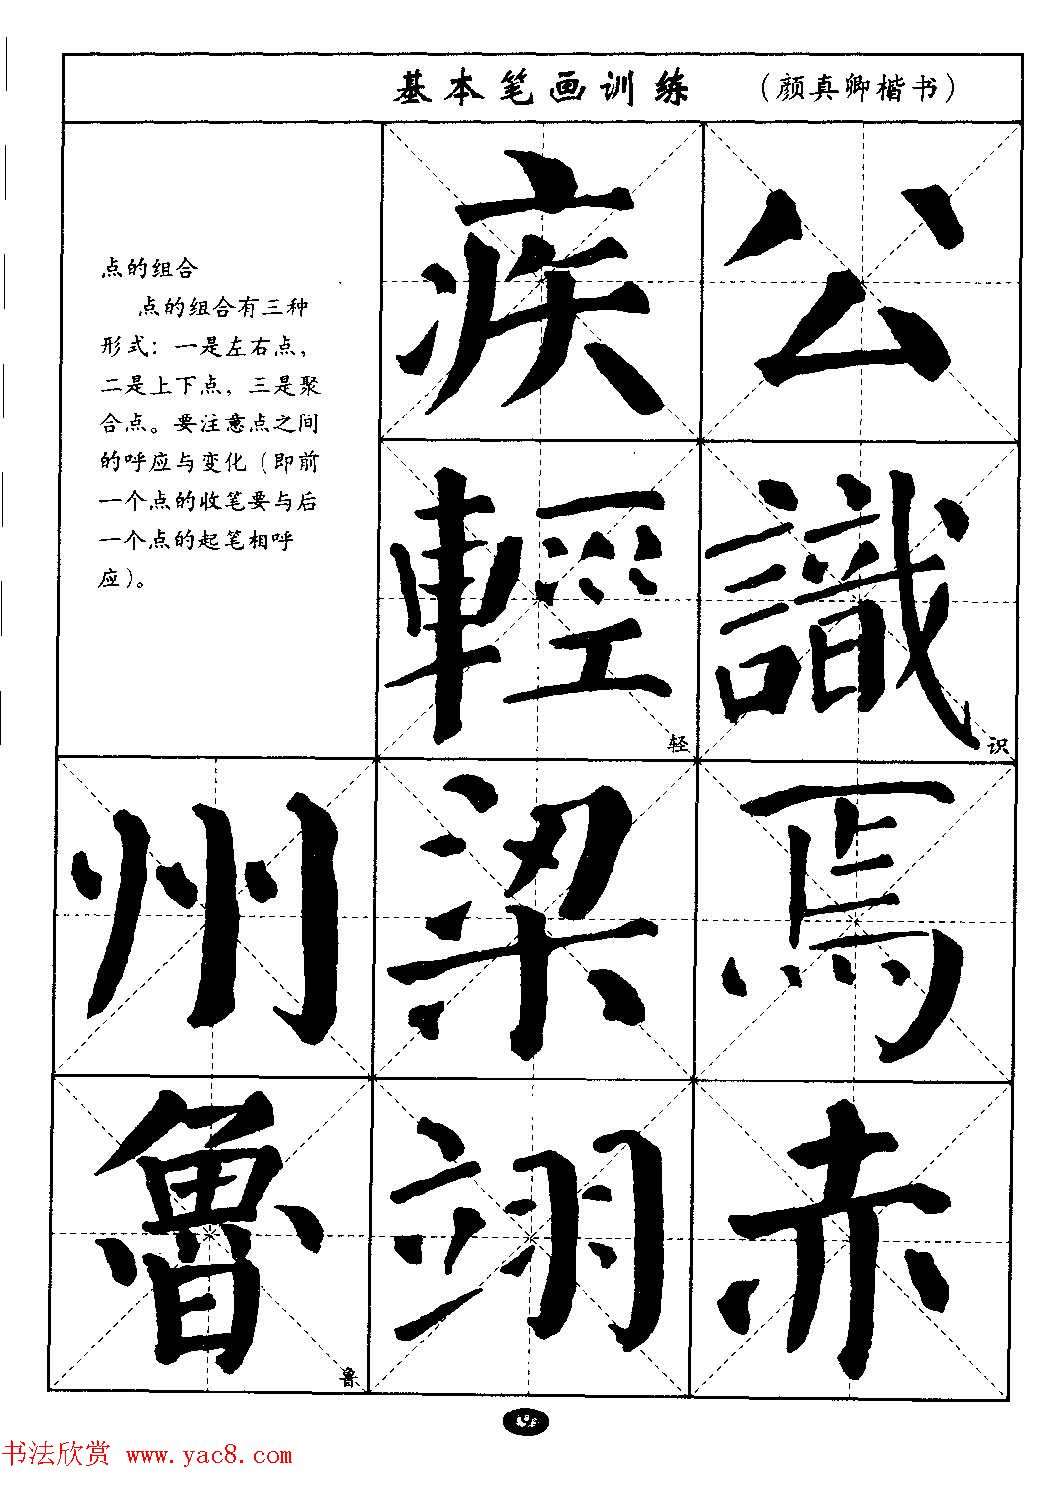 基本笔画训练 （颜真卿楷书）
点的组合
点的组合有三种
形式：一是左右点，
二是上下点，三是聚
合点。要注意点之间
的呼应与变化（即前
一个点的收笔要与后
一个点的起笔相呼
应）。
疾 公
輕 識
轻 识
州 梁 焉
魯 翊 赤
鲁
书法欣赏 www.yac8.com